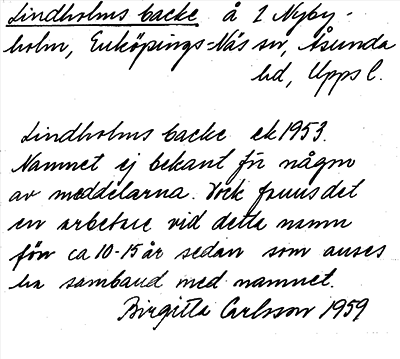 Lindholms backe å 2 Nyby-
holm, Enköpings-Näs sn, Åsunda
hd, Upps l.
Lindholms backe ek 1953.
Namnet ej bekant för någon
av meddelarna. Dock fanns det
en arbetare vid detta namn
för ca 10-15 år sedan som anses
ha samband med namnet.
Birgitta Carlsson 1959